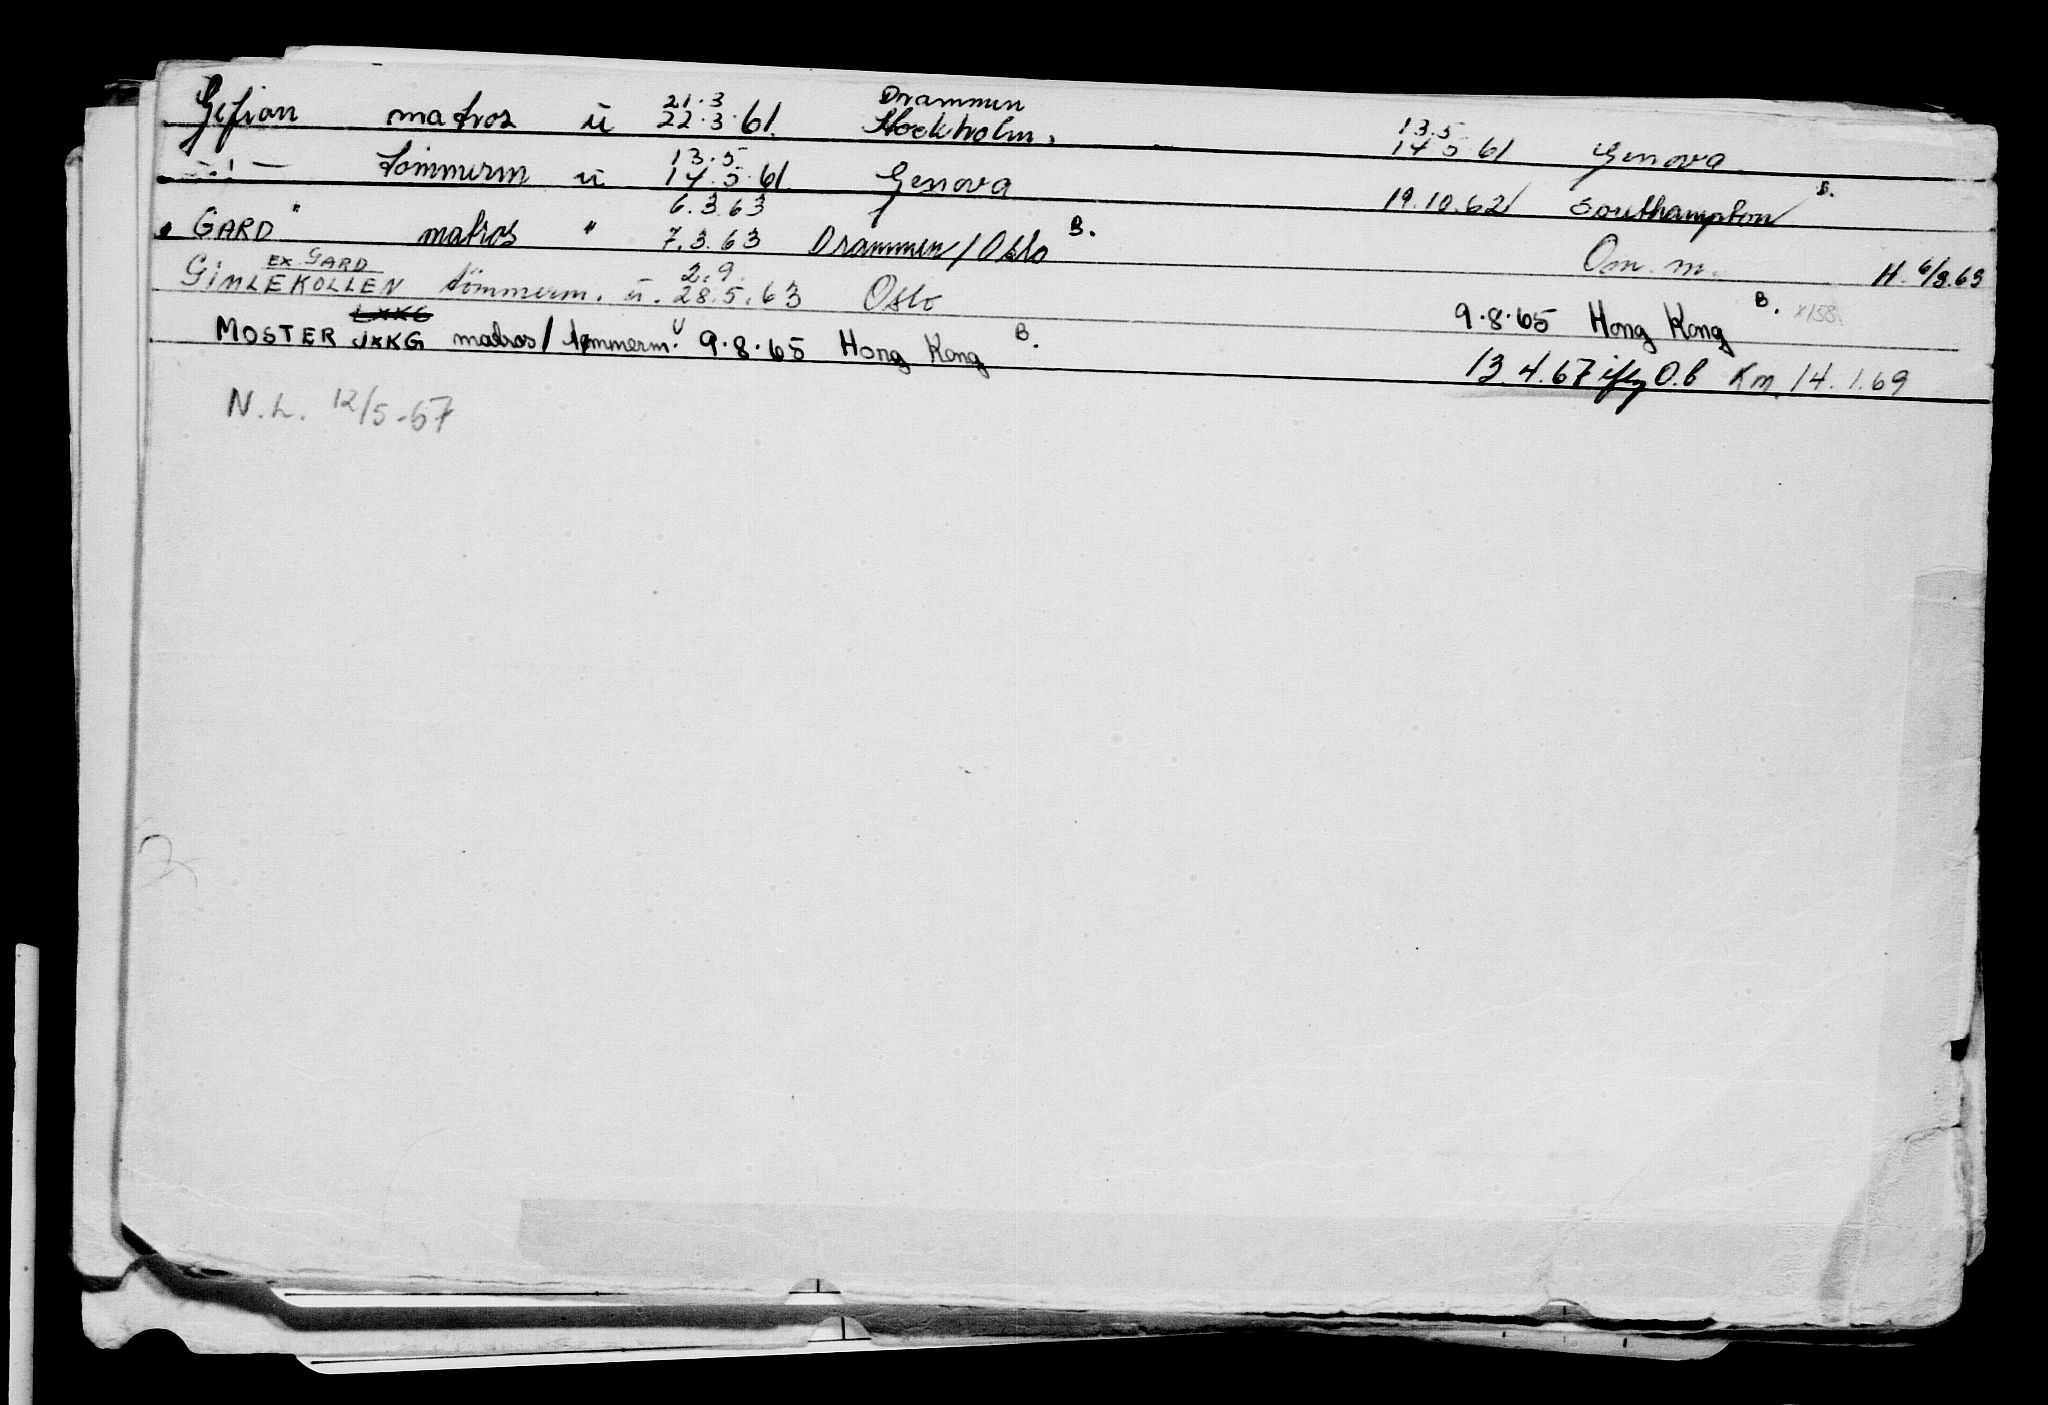 21.3 Drammen
Gefion matros ü 22.3.61. Stockholm. 13.5 14.5.61 Genova
13.5.
-"- tömmerm ü 14.5.61. Genova 19.10.62 Southampton B.
6.3.63
GARD " matros " 7.3.63 Drammen/Oslo B. Om. m. H. 6/3.63
EX GARD 2.9.
GIMLEKOLLEN tömmerm. ü. 28.5.63 Oslo 9.8.65 Hong Kong B. x158.
LXKG
MOSTER JXKG matros/tømmerm. U 9.8.65 Hong Kong B. 13.4.67 iflg O.b Km. 14.1.69
N.L. 12/5-67